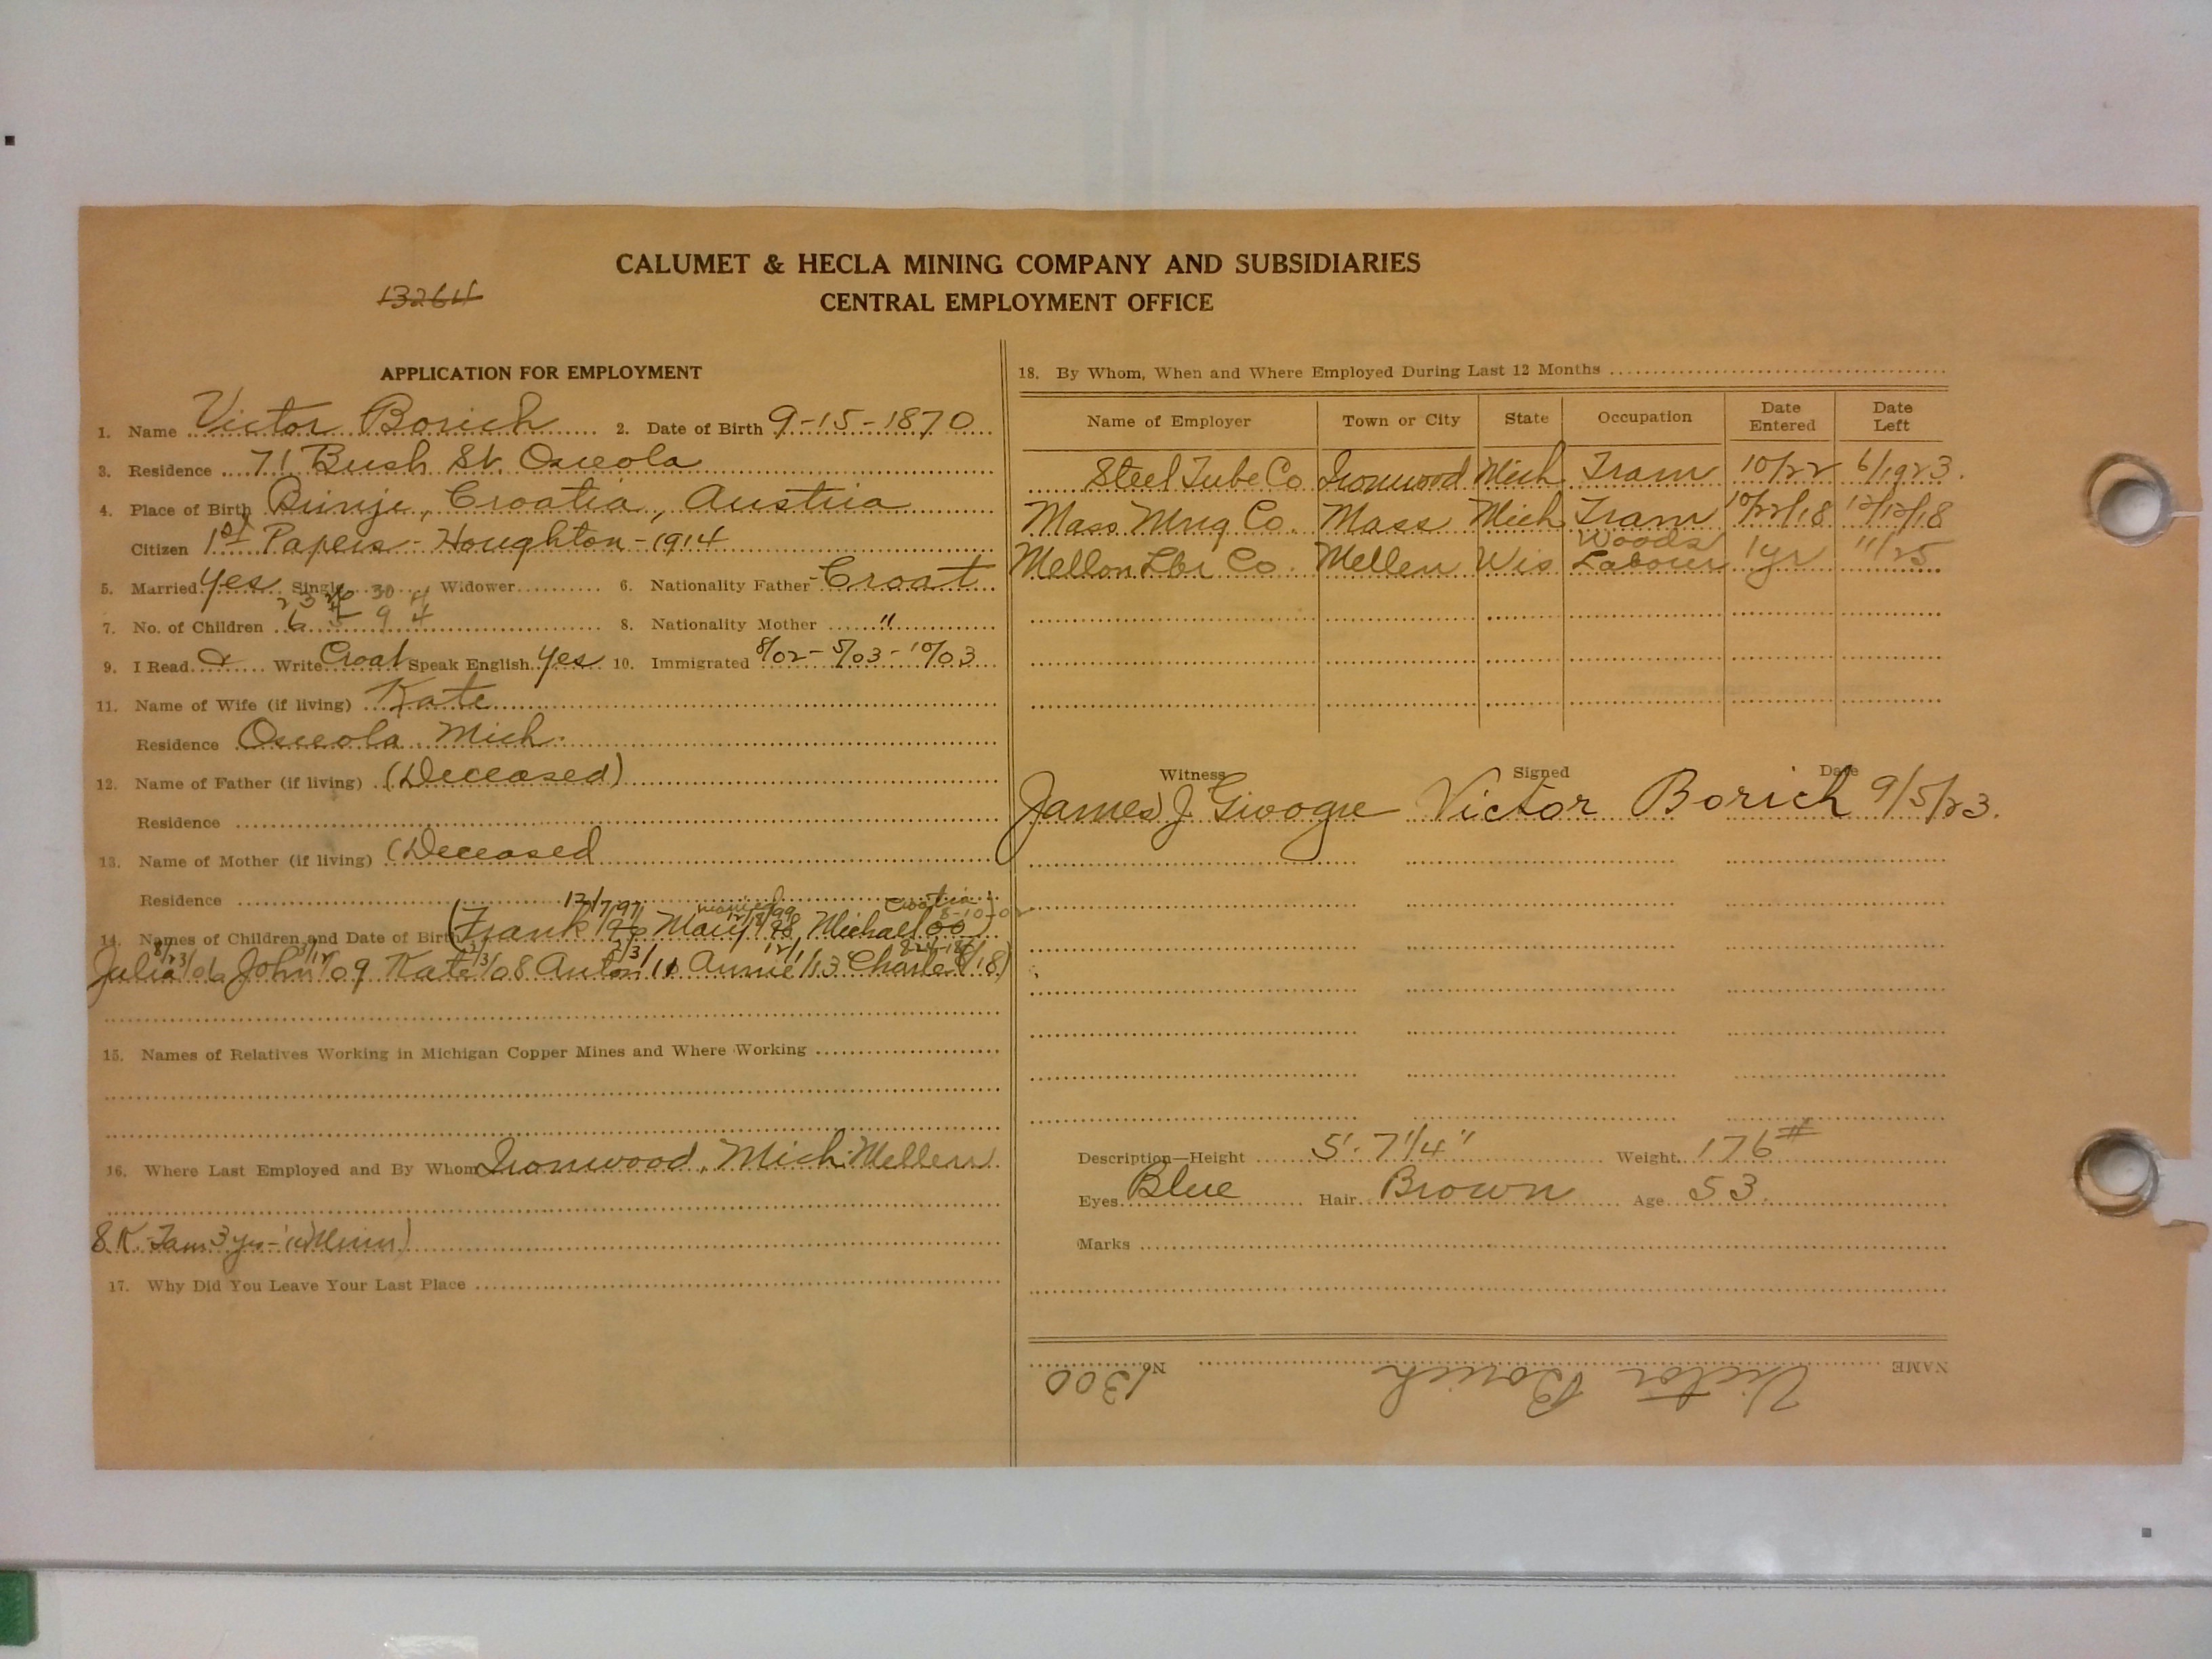 CALUMET & HECLA MINING COMPANY AND SUBSIDIARIES
13264
CENTRAL EMPLOYMENT OFFICE
APPLICATION FOR EMPLOYMENT
1. Name Victor Borich 2. Date of Birth 9-15-1870
3. Residence 71 Bush St. Osceola
4. Place of Birth Croatia, Austria
Citizen 1st Papers - Houghton - 1914
5. Married yes Single Widower 6. Nationality Father Croat
7. No. of Children 6 9 4 8. Nationality Mother "
9. I Read & Write Croat Speak English yes 10. Immigrated 8/02 - 5/03 - 10/03
11. Name of Wife (if living) Kate
Residence Osceola Mich.
12. Name of Father (if living) (Deceased)
Residence
13. Name of Mother (if living) (Deceased
Residence
12/7/97 married 12/18/99 Croatia 8-10-02
14. Names of Children and Date of Birth (Frank Mary Michael 00)
Julia /06 John /09 Kate /08 Anton Annie /13 Charles /18)
15. Names of Relatives Working in Michigan Copper Mines and Where Working
16. Where Last Employed and By Whom Ironwood, Mich. Mellen
8 3 yrs
17. Why Did You Leave Your Last Place
18. By Whom, When and Where Employed During Last 12 Months
Name of Employer Town or City State Occupation Date Entered Date Left
Steel Tube Co Ironwood Mich Tram 10/22 6/1923.
Mass Mng Co. Mass Mich Tram 10/22/18 12/12/18
Mellon Lbr Co. Mellen Wis Woods Labour 1 yr 11/25
Witness Signed Date
James J Victor Borich 9/5/23.
Description—Height 5'-7 1/4" Weight 176#
Eyes Blue Hair Brown Age 53
Marks
NAME Victor Borich No. 1300